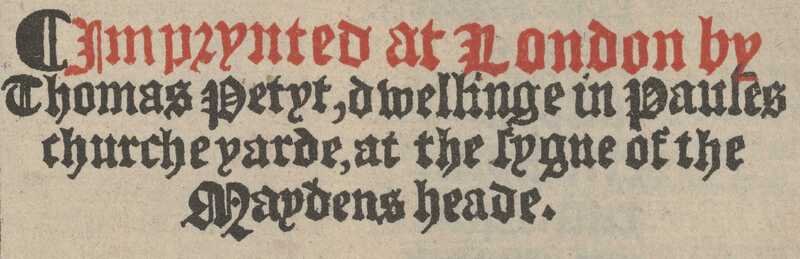 ⸿Imprynted at London by
Thomas Petyt, dwellinge in Paules
churche yarde, at the ſygne of the
Maydens heade.